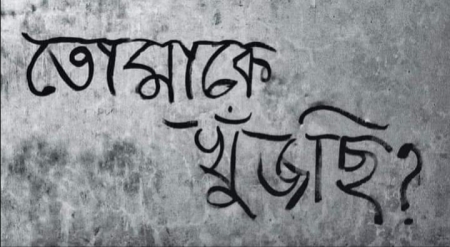 তোমাকে
খুঁজছি?